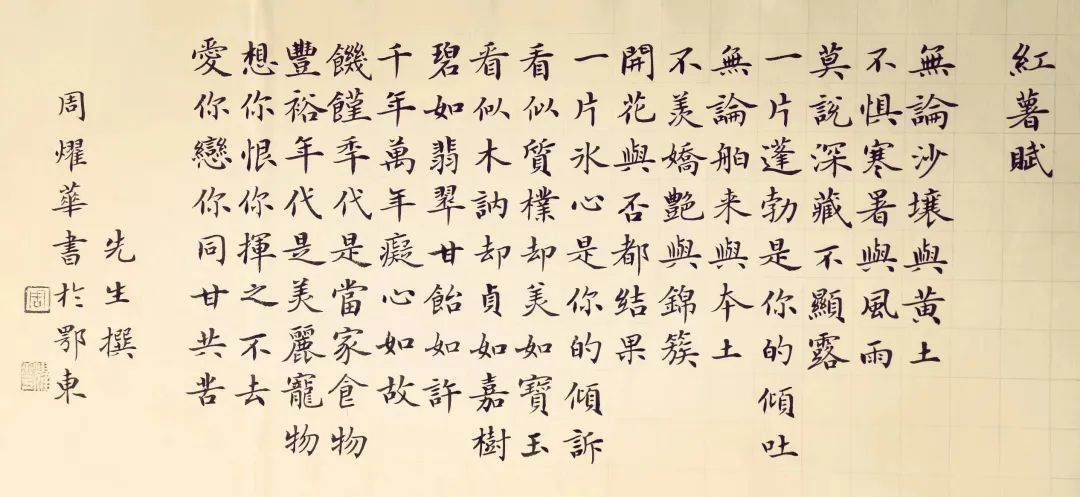 紅薯賦
無論沙壤與黃土
不懼寒暑與風雨
莫說深藏不顯露
一片蓬勃是你的傾吐
無論舶来與本土
不羨嬌艷與錦簇
開花與否都結果
一片氷心是你的傾訴
看似質樸却美如寶玉
看似木訥却貞如嘉樹
碧如翡翠甘飴如許
千年萬年癡心如故
饑饉年代是當家食物
豐裕年代是美麗寵物
想你恨你揮之不去
愛你戀你同甘共苦
先生撰
周燿華書於鄂東
周